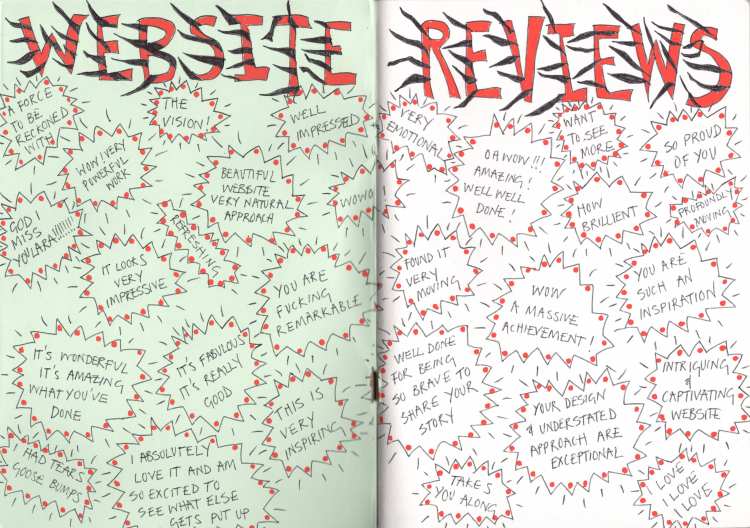 WEBSITE REVIEWS
A FORCE
TO BE
RECKONED
WITH
THE
VISION!
WELL
IMPRESSED
WOW! VERY
POWERFUL
WORK
BEAUTIFUL
WEBSITE
VERY NATURAL
APPROACH
WOWO
GOD I
MISS
YOU LARA!!!!!!
REFRESHING
IT LOOKS
VERY
IMPRESSIVE
YOU ARE
FUCKING
REMARKABLE
IT'S WONDERFUL
IT'S AMAZING
WHAT YOU'VE
DONE
IT'S FABULOUS
IT'S REALLY
GOOD
THIS IS
VERY
INSPIRING
I HAD TEARS
GOOSE BUMPS
I ABSOLUTELY
LOVE IT AND AM
SO EXCITED TO
SEE WHAT ELSE
GETS PUT UP
VERY
EMOTIONAL
OH WOW!!!
AMAZING!
WELL WELL
DONE!
WANT
TO SEE
MORE
SO PROUD
OF YOU
HOW
BRILLIENT
PROFOUNDLY
MOVING
FOUND IT
VERY
MOVING
WOW
A MASSIVE
ACHIEVEMENT!
YOU ARE
SUCH AN
INSPIRATION
WELL DONE
FOR BEING
SO BRAVE TO
SHARE YOUR
STORY
YOUR DESIGN
& UNDERSTATED
APPROACH ARE
EXCEPTIONAL
INTRIGUING
&
CAPTIVATING
WEBSITE
TAKES
YOU ALONG
I LOVE
I LOVE
I LOVE